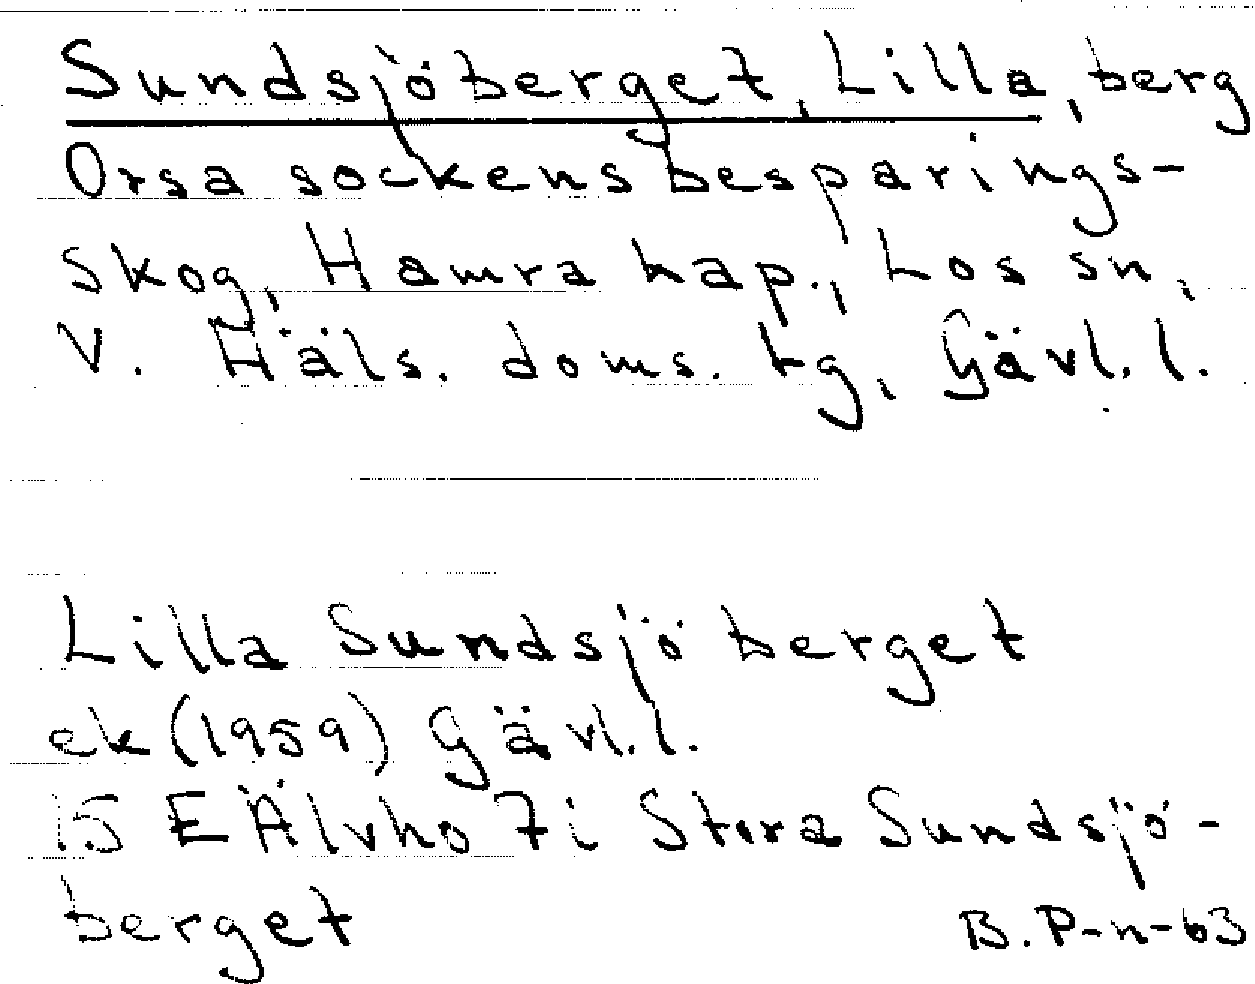 Sundsjöberget, Lilla, berg
Orsa sockens besparings-
skog, Hamra kap., Los sn,
V. Häls. doms. tg, Gävl. l.
Lilla Sundsjöberget
ek (1959) Gävl. l.
15 E Älvho 7i Stora Sundsjö-
berget
B. P-n-63